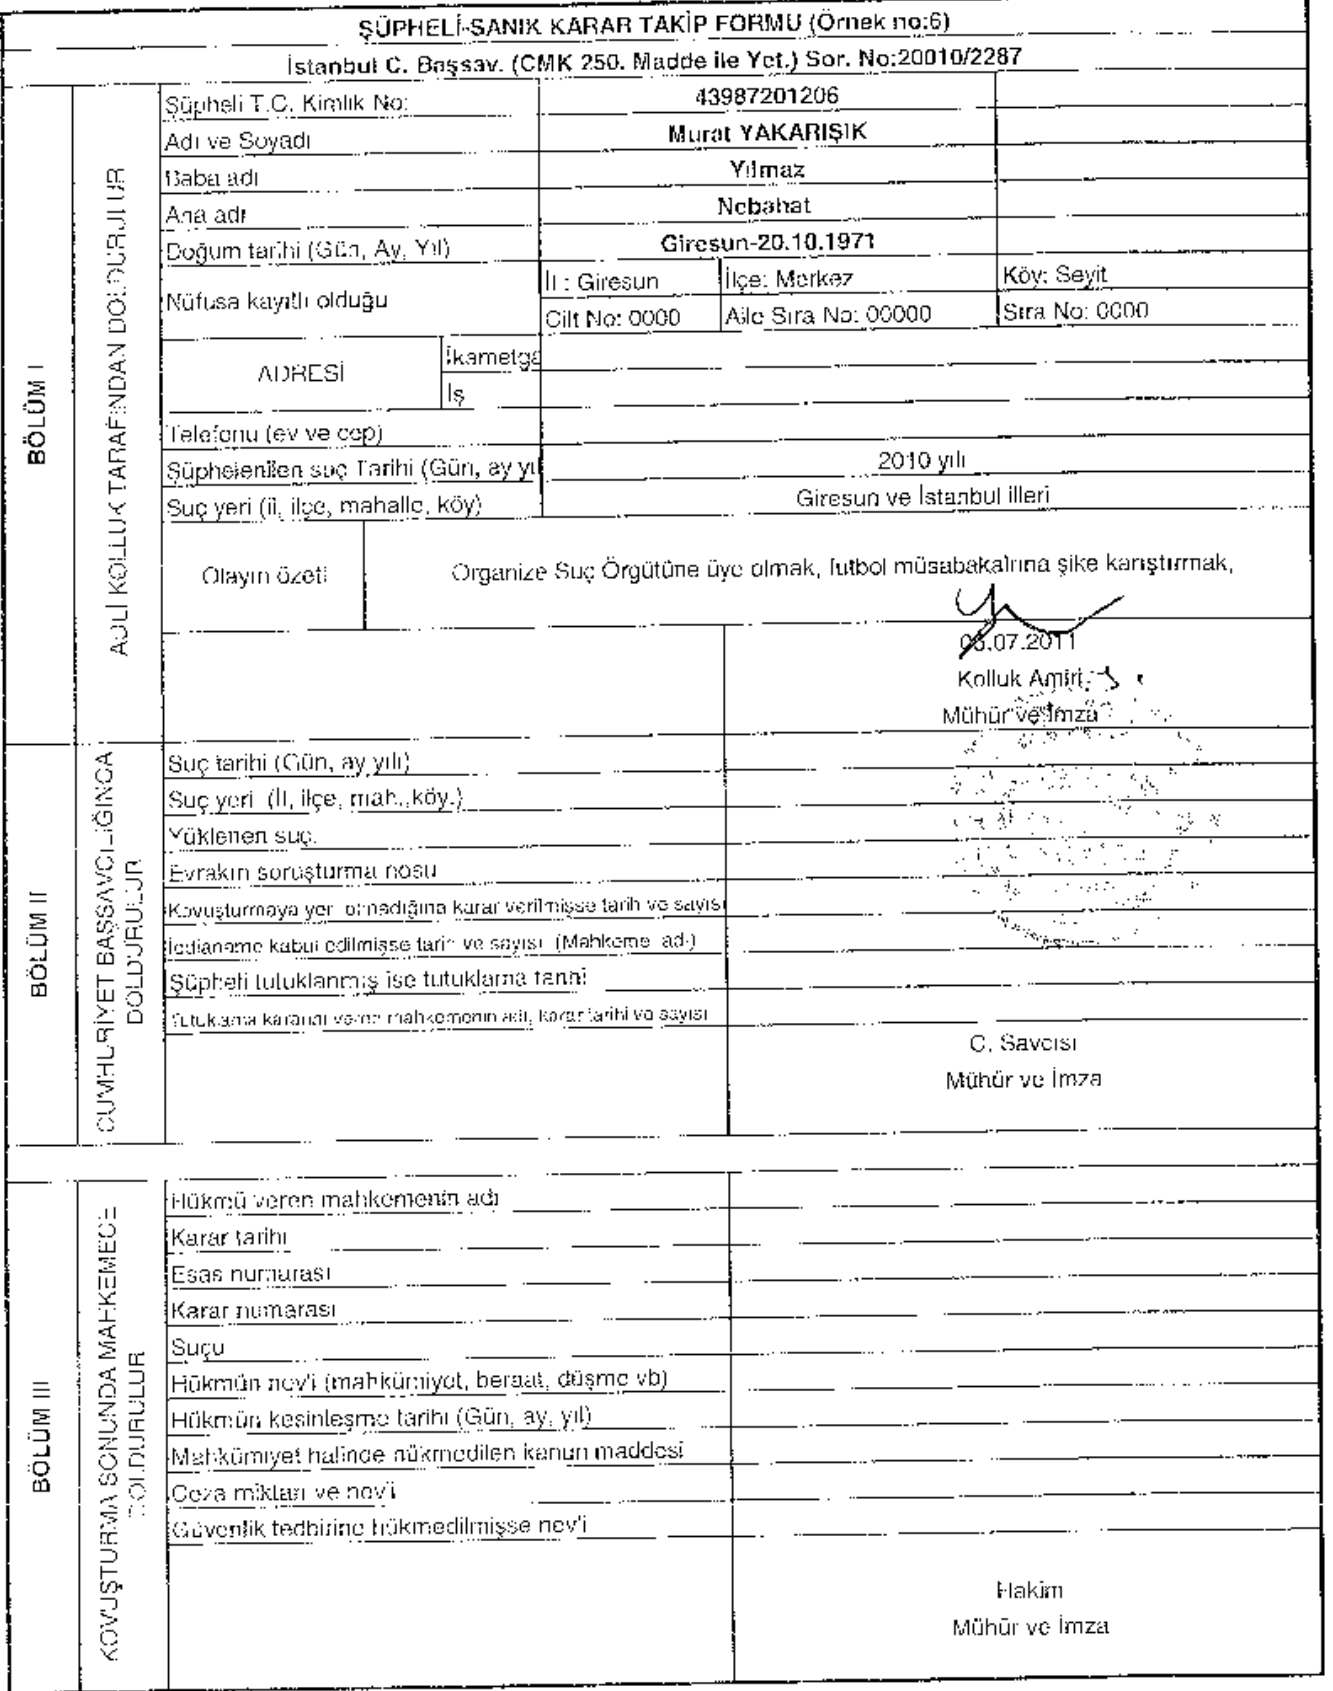 ŞÜPHELİ-SANIK KARAR TAKİP FORMU (Örnek no:6)
İstanbul C. Başsav. (CMK 250. Madde ile Yet.) Sor. No:20010/2287
BÖLÜM I
ADLİ KOLLUK TARAFINDAN DOLDURULUR
Şüpheli T.C. Kimlik No: 43987201206
Adı ve Soyadı Murat YAKARIŞIK
Baba adı Yılmaz
Ana adı Nebahat
Doğum tarihi (Gün, Ay, Yıl) Giresun-20.10.1971
Nüfusa kayıtlı olduğu
İl : Giresun İlçe: Merkez Köy: Seyit
Cilt No: 0000 Aile Sıra No: 00000 Sıra No: 0000
ADRESİ
İkametga
İş
Telefonu (ev ve cep)
Şüphelenilen suç Tarihi (Gün, ay yı 2010 yılı
Suç yeri (il, ilçe, mahalle, köy) Giresun ve İstanbul illeri
Olayın özeti Organize Suç Örgütüne üye olmak, futbol müsabakalrına şike karıştırmak,
06.07.2011
Kolluk Amiri
Mühür ve İmza
BÖLÜM II
CUMHURİYET BAŞSAVCILIĞINCA
DOLDURULUR
Suç tarihi (Gün, ay yılı)
Suç yeri (İl, ilçe, mah.,köy.)
Yüklenen suç.
Evrakın soruşturma nosu
Kovuşturmaya yer olmadığına karar verilmişse tarih ve sayısı
İddianame kabul edilmişse tarih ve sayısı (Mahkeme adı)
Şüpheli tutuklanmış ise tutuklama tarihi
Tutuklama kararını veren mahkemenin adı, karar tarihi ve sayısı
C. Savcısı
Mühür ve İmza
BÖLÜM III
KOVUŞTURMA SONUNDA MAHKEMECE
DOLDURULUR
Hükmü veren mahkemenin adı
Karar tarihi
Esas numarası
Karar numarası
Suçu
Hükmün nev'i (mahkümiyet, beraat, düşme vb)
Hükmün kesinleşme tarihi (Gün, ay, yıl)
Mahkümiyet halinde hükmedilen kanun maddesi
Ceza miktarı ve nev'i
Güvenlik tedbirine hükmedilmişse nev'i
Hakim
Mühür ve İmza